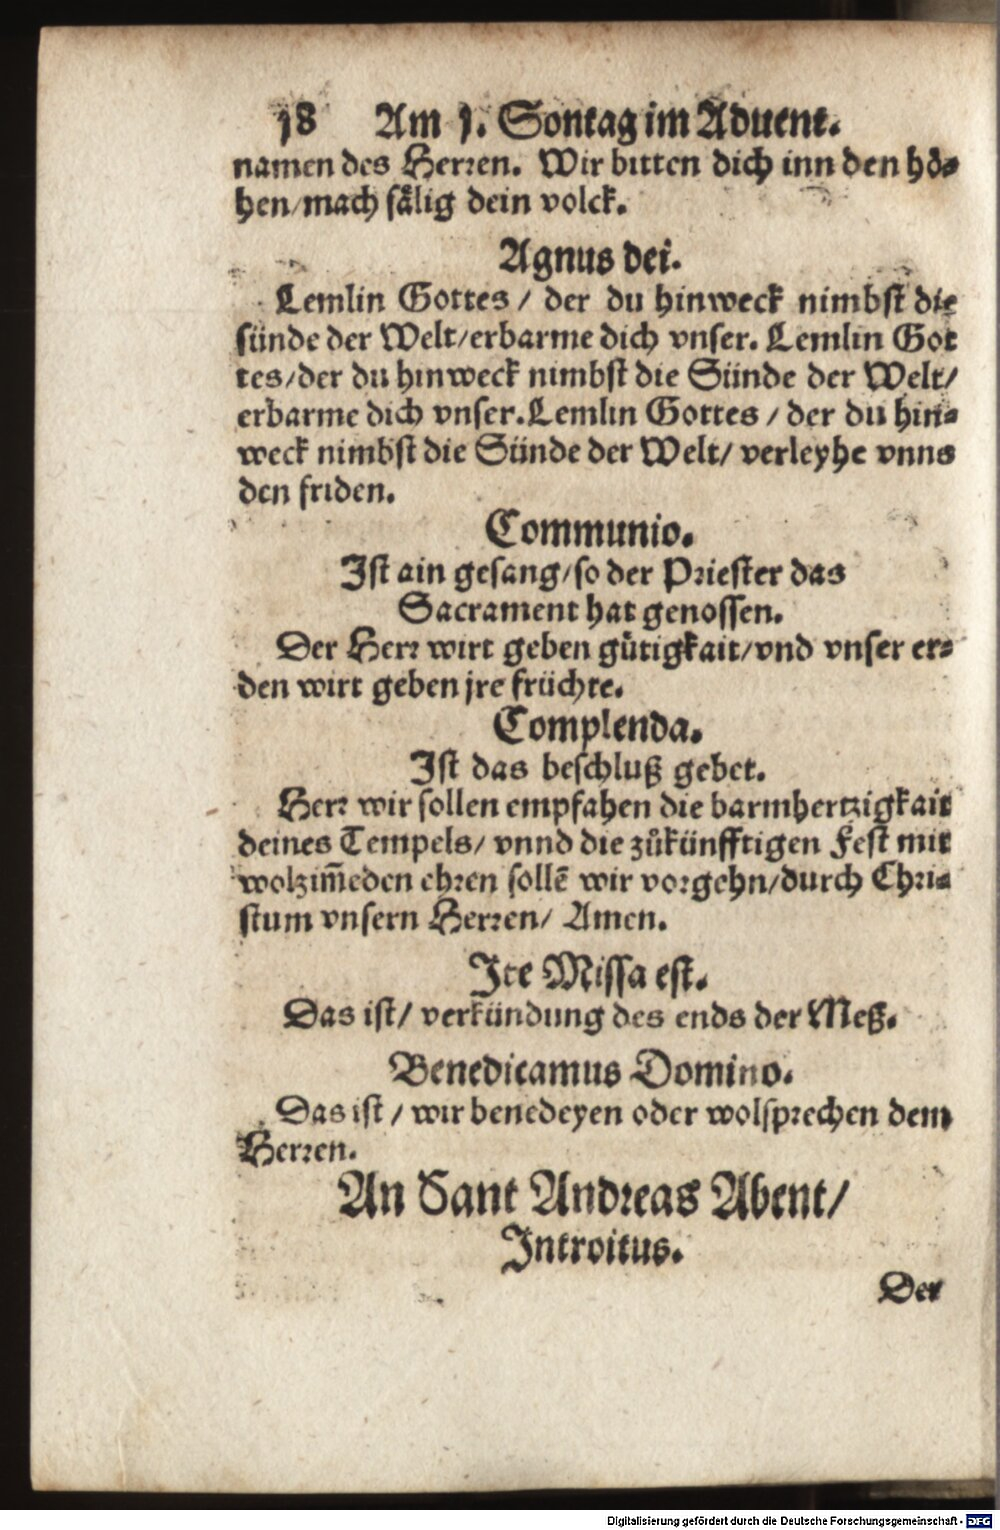 18 Am 1. Sontag im Aduent.
namen des Herren. Wir bitten dich inn den hö-
hen/mach sälig dein volck.
Agnus dei.
Lemlin Gottes / der du hinweck nimbst die
sünde der Welt/erbarme dich vnser. Lemlin Got
tes/der du hinweck nimbst die Sünde der Welt/
erbarme dich vnser. Lemlin Gottes / der du hin-
weck nimbst die Sünde der Welt/ verleyhe vnns
den friden.
Communio.
Ist ain gesang/so der Priester das
Sacrament hat genossen.
Der Herr wirt geben gütigkait/vnd vnser er-
den wirt geben jre früchte.
Complenda.
Ist das beschluß gebet.
Herr wir sollen empfahen die barmhertzigkait
deines Tempels/ vnnd die zůkünfftigen Fest mit
wolzim̄eden ehren sollē wir vorgehn/durch Chri-
stum vnsern Herren/ Amen.
Ite Missa est.
Das ist/ verkündung des ends der Meß.
Benedicamus Domino.
Das ist / wir benedeyen oder wolsprechen dem
Herren.
An Sant Andreas Abent/
Introitus.
Der
Digitalisierung gefördert durch die Deutsche Forschungsgemeinschaft - DFG